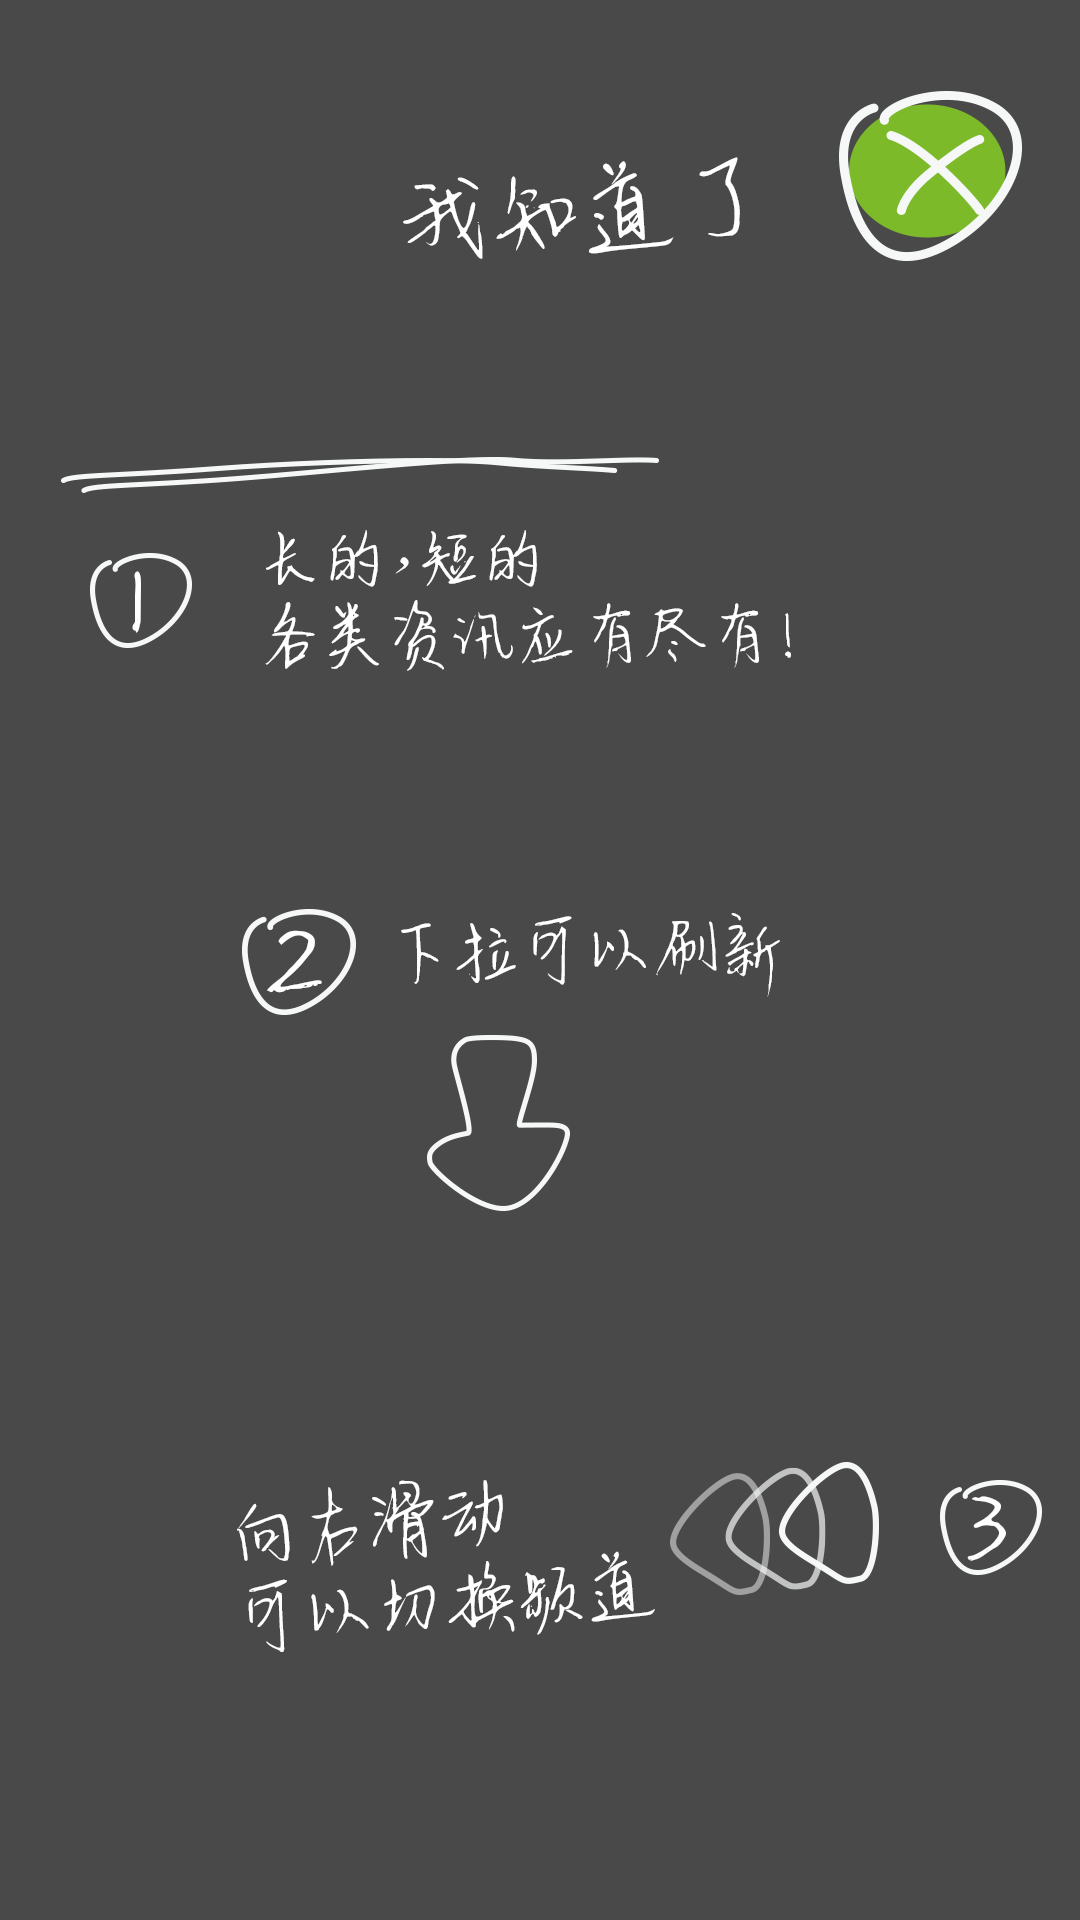 我知道了
① 长的，短的
各类资讯应有尽有！
② 下拉可以刷新
向右滑动 ③
可以切换频道